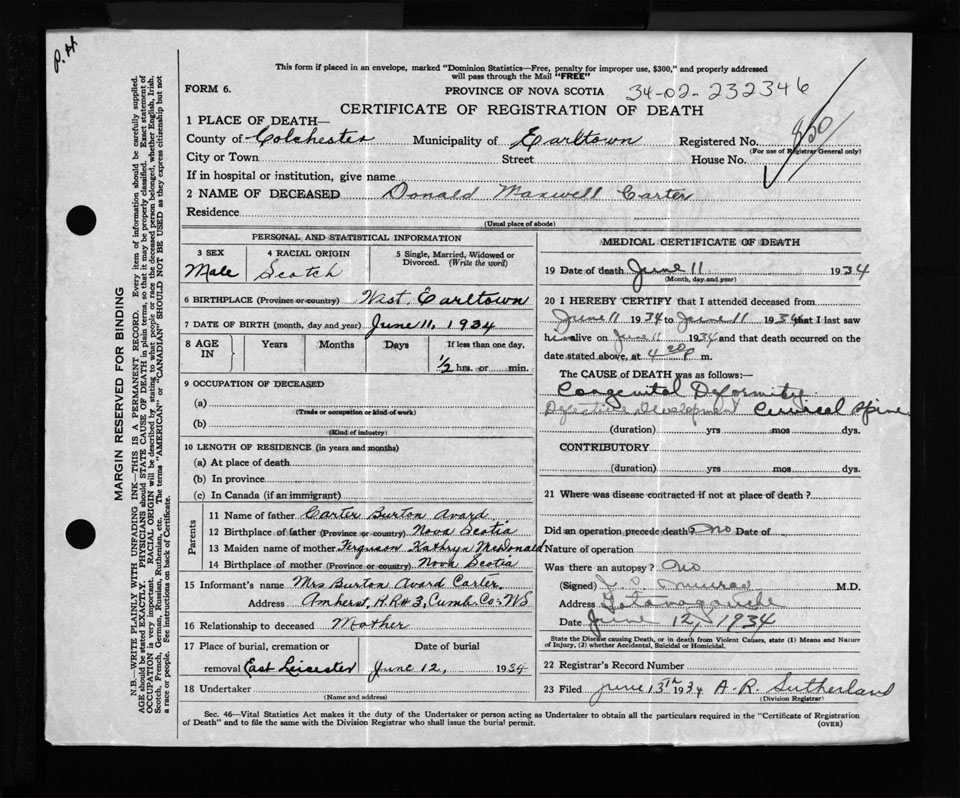 P. H.
This form if placed in an envelope, marked "Dominion Statistics—Free, penalty for improper use, $300," and properly addressed
will pass through the Mail "FREE"
FORM 6.
PROVINCE OF NOVA SCOTIA
34-02-232346
CERTIFICATE OF REGISTRATION OF DEATH
1 PLACE OF DEATH—
County of Colchester Municipality of Earltown Registered No. 850
(For use of Registrar General only)
City or Town Street House No.
If in hospital or institution, give name
2 NAME OF DECEASED Donald Maxwell Carter
Residence
(Usual place of abode)
PERSONAL AND STATISTICAL INFORMATION
3 SEX 4 RACIAL ORIGIN 5 Single, Married, Widowed or
Divorced. (Write the word)
Male Scotch
6 BIRTHPLACE (Province or country) West Earltown
7 DATE OF BIRTH (month, day and year) June 11, 1934
8 AGE IN Years Months Days If less than one day,
1/2 hrs. or min.
9 OCCUPATION OF DECEASED
(a)
(Trade or occupation or kind of work)
(b)
(Kind of industry)
10 LENGTH OF RESIDENCE (in years and months)
(a) At place of death
(b) In province
(c) In Canada (if an immigrant)
Parents
11 Name of father Carter Burton Avard
12 Birthplace of father (Province or country) Nova Scotia
13 Maiden name of mother Ferguson Kathryn McDonald
14 Birthplace of mother (Province or country) Nova Scotia
15 Informant's name Mrs Burton Avard Carter
Address Amherst, R.R#3, Cumb. Co. NS
16 Relationship to deceased Mother
17 Place of burial, cremation or Date of burial
removal East Leicester June 12, 1934
18 Undertaker
(Name and address)
MEDICAL CERTIFICATE OF DEATH
19 Date of death June 11 1934
(Month, day and year)
20 I HEREBY CERTIFY that I attended deceased from
June 11 1934 to June 11 1934 that I last saw
him alive on June 11 1934 and that death occurred on the
date stated above, at 4 20 p m.
The CAUSE of DEATH was as follows:—
Congenital Deformity
Defective Development Cervical Spine
(duration) yrs mos dys.
CONTRIBUTORY
(duration) yrs mos dys.
21 Where was disease contracted if not at place of death?
Did an operation precede death? No Date of
Nature of operation
Was there an autopsy? No
(Signed) M.D.
Address
Date June 12, 1934
State the Disease causing Death, or in death from Violent Causes, state (1) Means and Nature
of Injury, (2) whether Accidental, Suicidal or Homicidal.
22 Registrar's Record Number
23 Filed June 13th 1934 A. R. Sutherland
(Division Registrar)
Sec. 46—Vital Statistics Act makes it the duty of the Undertaker or person acting as Undertaker to obtain all the particulars required in the "Certificate of Registration
of Death" and to file the same with the Division Registrar who shall issue the burial permit.
(OVER)
MARGIN RESERVED FOR BINDING
N.B.—WRITE PLAINLY WITH UNFADING INK—THIS IS A PERMANENT RECORD. Every item of information should be carefully supplied.
AGE should be stated EXACTLY. PHYSICIANS should STATE CAUSE OF DEATH in plain terms, so that it may be properly classified. Exact statement of
OCCUPATION is very important. RACIAL ORIGIN will be described by stating to what people or race the deceased person belonged, whether English, Irish,
Scotch, French, German, Russian, Ruthenian, etc. The terms "AMERICAN" or "CANADIAN" SHOULD NOT BE USED as they express citizenship but not
a race or people. See instructions on back of Certificate.